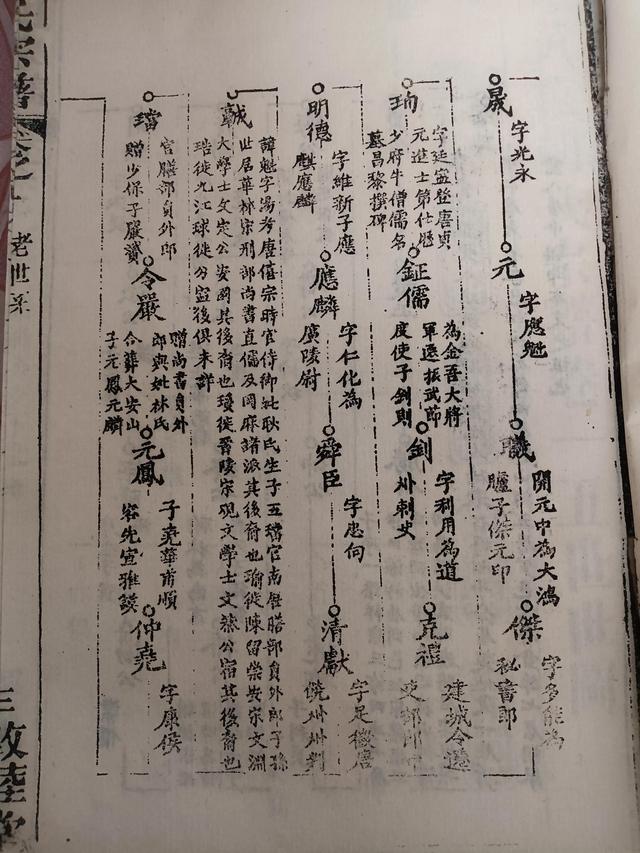 晟
字光永
元
字應魁
職
開元中為大鴻
臚子傑元印
傑
字多能為
秘書郎
珦
字廷寔登唐貞
元進士第仕
少府牛僧儒名
墓昌黎撰碑
鉦儒
為金吾大將
軍遷振武節
度使子釗則
釗
字利用為道
州刺史
克禮
建城令遷
明德
字維新子應
麒應麟
應麟
字仁化為
廣陵尉
舜臣
字忠伺
清獻
字足徵唐
饒州州判
諱魁字湯考唐僖宗時官侍御妣耿氏生子五璿官南
膳部員外郎子孫
世居華林宋刑部尚書直儒及岡麻諸派其後裔也瑜徙陳留崇安宋文淵
大學士文定公安國其後裔也瑗徙晉陵宋硯文學士文恭公宿其後裔也
琣徙九江球徙分宜後俱未詳
璿
官膳部員外郎
贈少保子嚴
令嚴
贈尚書員外
郎與妣林氏
合葬大安山
子元鳳元麟
元鳳
子堯華甫順
容先宣雅
仲堯
字康侯
氏宗譜
老世系
敦睦堂